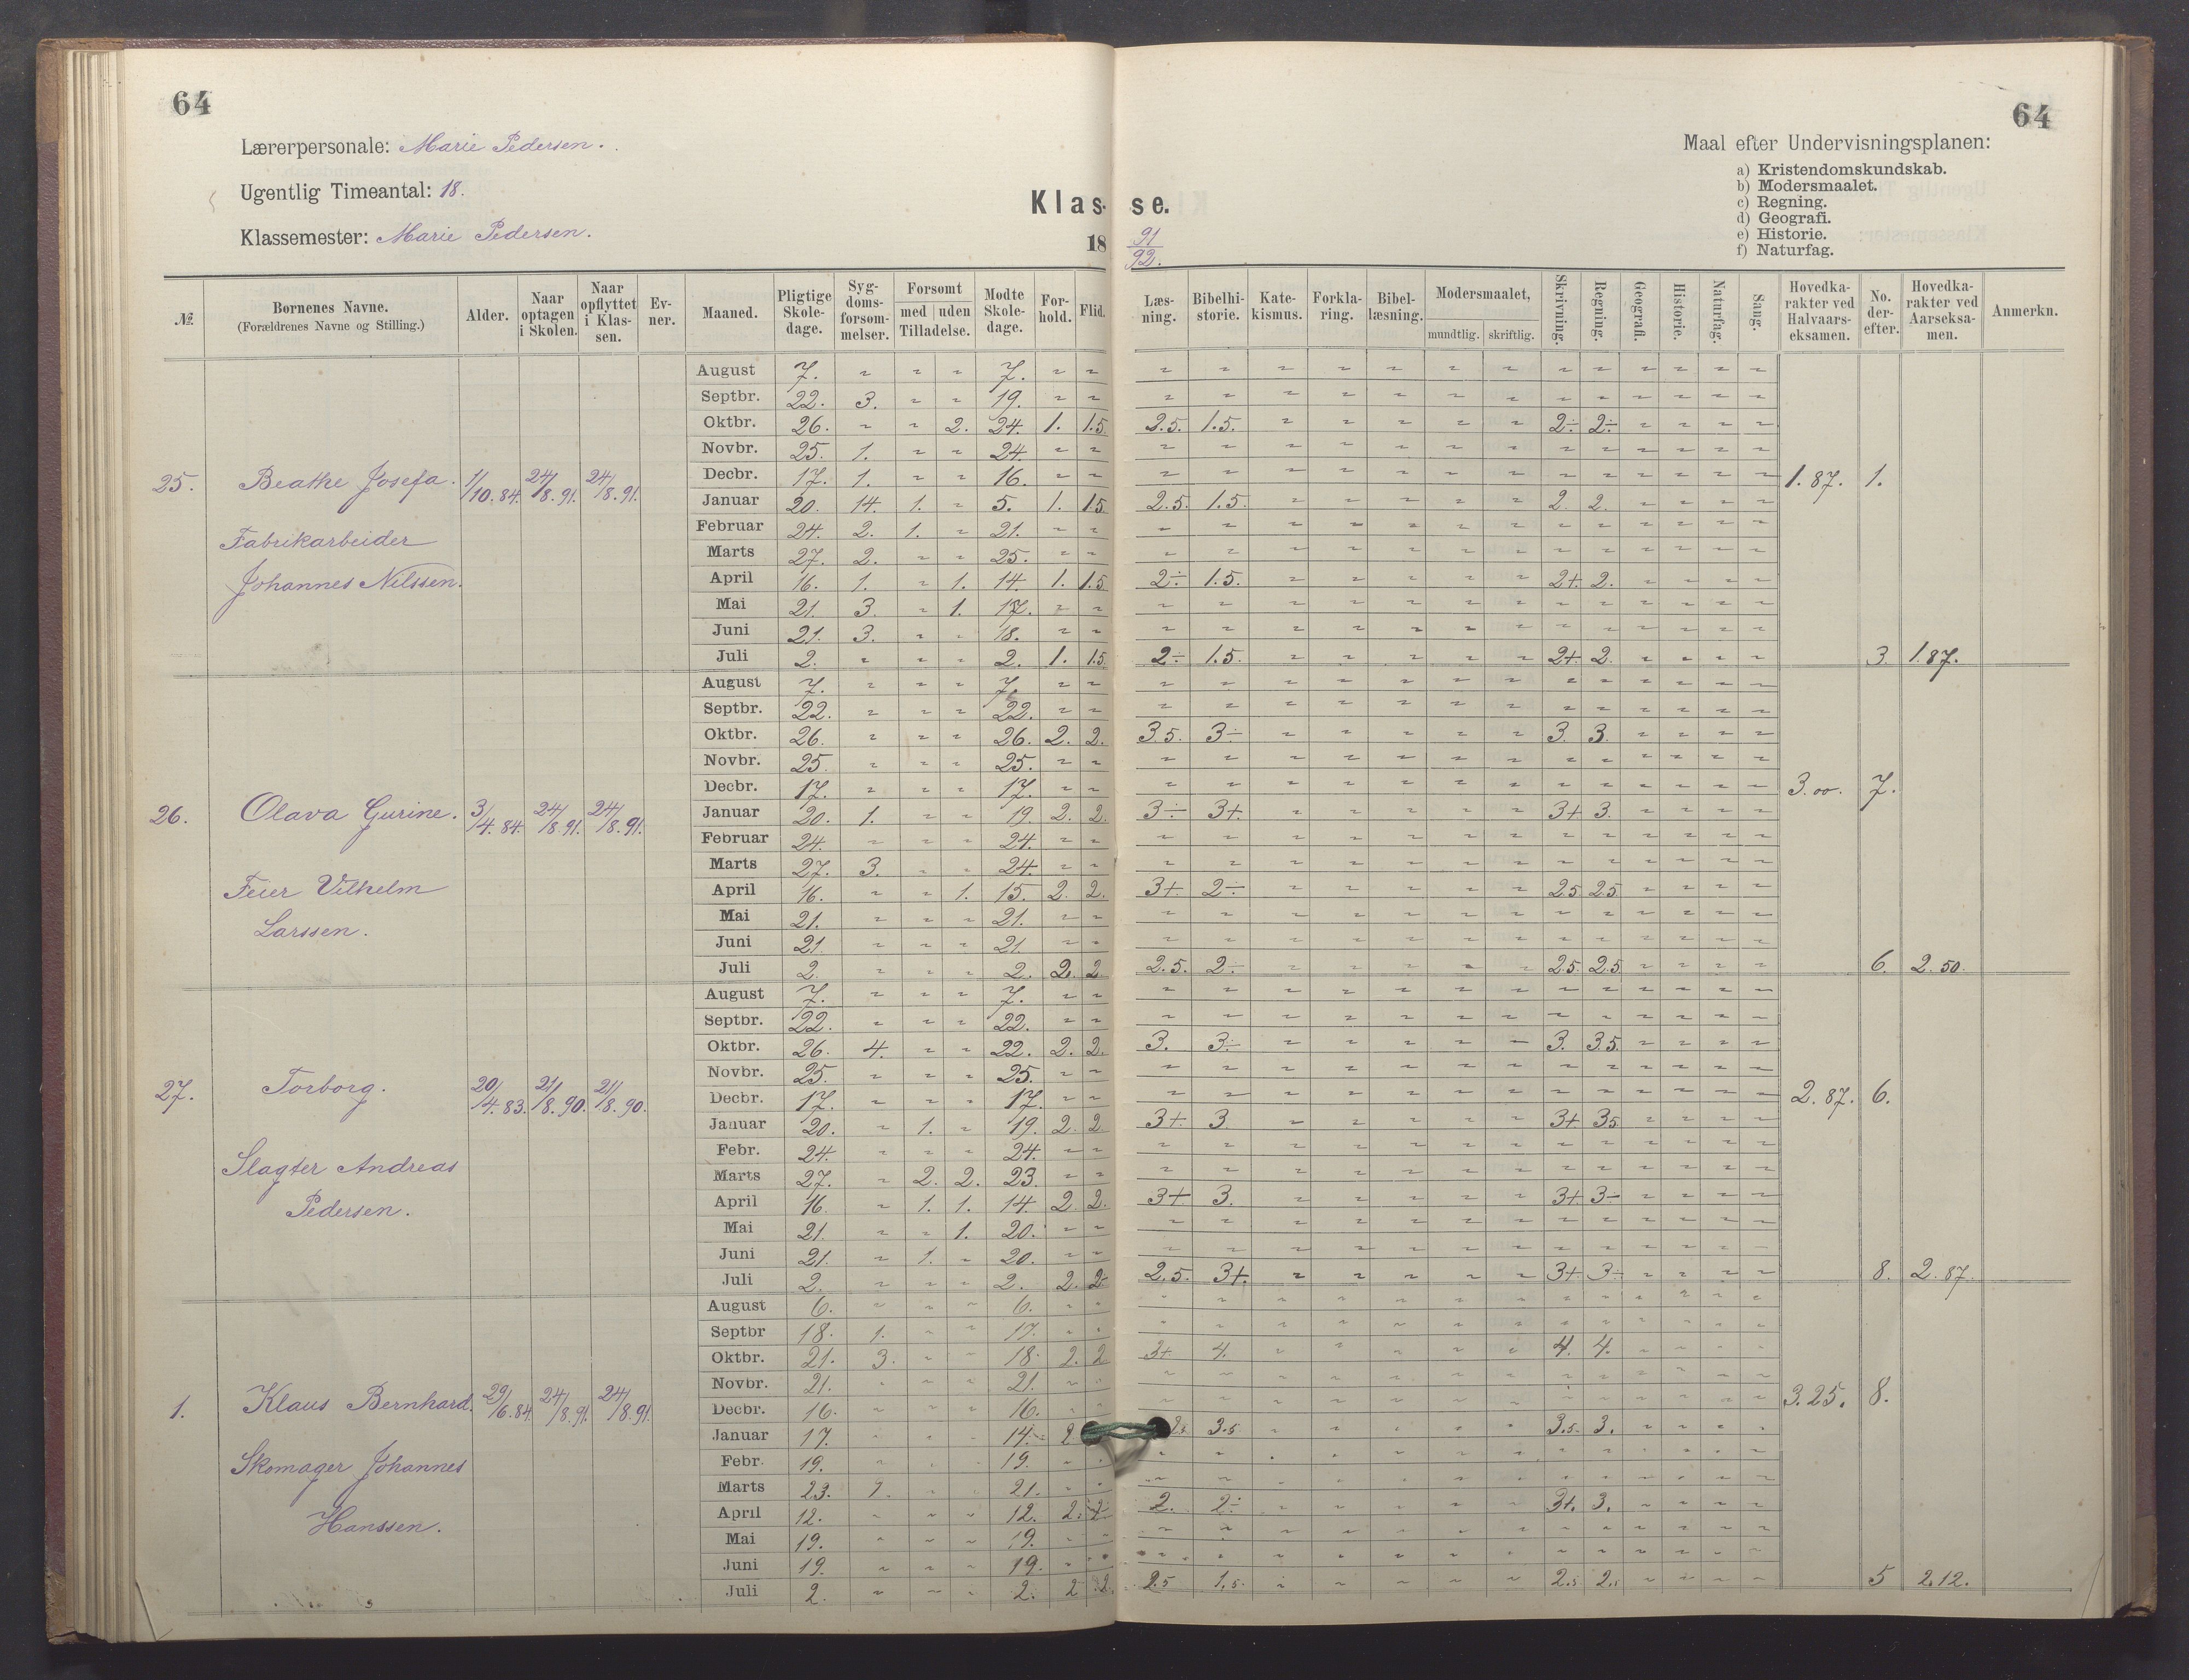 64
Lærerpersonale: Marie Pedersen.
Ugentlig Timeantal: 18.
Klassemester: Marie Pedersen.
Klas-
18
64
se.
91/92.
Maal efter Undervisningsplanen:
a) Kristendomskundskab.
b) Modersmaalet.
c) Regning.
d) Geografi.
e) Historie.
f) Naturfag.
№ Børnenes Navne. (Forældrenes Navne og Stilling.) Alder. Naar optagen i Skolen. Naar opflyttet i Klassen. Evner. Maaned. Pligtige Skoledage. Sygdomsforsømmelser. Forsømt med | uden Tilladelse. Mødte Skoledage. Forhold. Flid. Læsning. Bibelhistorie. Katekismus. Forklaring. Bibellæsning. Modersmaalet, mundtlig. skriftlig. Skrivning. Regning. Geografi. Historie. Naturfag. Sang. Hovedkarakter ved Halvaarseksamen. No. derefter. Hovedkarakter ved Aarseksamen. Anmerkn.
25. Beathe Josefa. 1/10.84. 24/8.91. 24/8.91.
Fabrikarbeider
Johannes Nilssen.
August 7. " " " 7. " "
Septbr. 22. 3. " " 19. " "
Oktbr. 26. " " 2. 24. 1. 1.5. 2.5. 1.5. " " " " " 2÷ 2÷ " " " "
Novbr. 25. 1. " " 24. " "
Decbr. 17. 1. " " 16. " " 1.87. 1.
Januar 20. 14. 1. " 5. 1. 1.5 2.5. 1.5. " " " " " 2. 2. " " " "
Februar 24. 2. 1. " 21. " "
Marts 27. 2. " " 25. " "
April 16. 1. " 1. 14. 1. 1.5 2÷ 1.5. " " " " " 2+. 2. " " " "
Mai 21. 3. " 1. 17. " "
Juni 21. 3. " " 18. " "
Juli 2. " " " 2. 1. 1.5. 2÷ 1.5. " " " " " 2+. 2. " " " " 3. 1.87.
26. Olava Gurine. 3/4.84. 24/8.91. 24/8.91.
Feier Vilhelm
Larssen.
August 7. " " " 7. " "
Septbr. 22. " " " 22. " "
Oktbr. 26. " " " 26. 2. 2. 3.5. 3÷ " " " " " 3. 3. " " " "
Novbr. 25. " " " 25. " "
Decbr. 17. " " " 17. " " 3.00. 7.
Januar 20. 1. " " 19. 2. 2. 3÷ 3+. " " " " " 3+ 3. " " " "
Februar 24. " " " 24. " "
Marts 27. 3. " " 24. " "
April 16. " " 1. 15. 2. 2. 3+. 2÷ " " " " " 2.5. 2.5. " " " "
Mai 21. " " " 21. " "
Juni 21 " " " 21. " "
Juli 2. " " " 2. 2. 2 2.5. 2÷ " " " " " 2.5. 2.5. " " " " 6. 2.50.
27. Torborg. 20/4.83. 21/8.90. 21/8.90.
Slagter Andreas
Pedersen.
August 7. " " " 7. " "
Septbr. 22. " " " 22. " "
Oktbr. 26. 4. " " 22. 2. 2. 3. 3÷ " " " " " 3. 3.5. " " " "
Novbr. 25. " " " 25. " "
Decbr. 17. " " " 17. " " 2.87. 6.
Januar 20. " 1. " 19. 2. 2 3+. 3. " " " " " 3+ 3.5 " " " "
Febr. 24. " " " 24. " "
Marts 27. " 2. 2. 23. " "
April 16. " 1. 1. 14. 2. 2. 3+ 3. " " " " " 3+. 3÷ " " " "
Mai 21. " " 1. 20. " "
Juni 21. " 1. " 20. " "
Juli 2. " " " 2. 2. 2 2.5. 3+. " " " " " 3+. 3÷ " " " " 8. 2.87.
1. Klaus Bernhard. 29/6.84. 24/8.91. 24/8.91.
Skomager Johannes
Hanssen.
August 6. " " " 6. " "
Septbr 18. 1. " " 17. " "
Oktbr. 21. 3. " " 18. 2. 2 3+ 4. " " " " " 4. 4. " " " "
Novbr. 21. " " " 21. " "
Decbr. 16. " " " 16. " " 3.25. 8.
Januar 17. " " " 14. 3.5 " " " " " 3.5. 3. " " " "
Febr. 19. " " " 19. " "
Marts 23. " " 21. " "
April 12. " " " 12. 2. 2 2. 2÷ " " " " " 3+. 3. " " " "
Mai 19. " " " 19. " "
Juni 19. " " " 19. " "
Juli 2. " " " 2. 2 2. 2.5 1.5. " " " " " 2.5 " " " " 5 2.12.